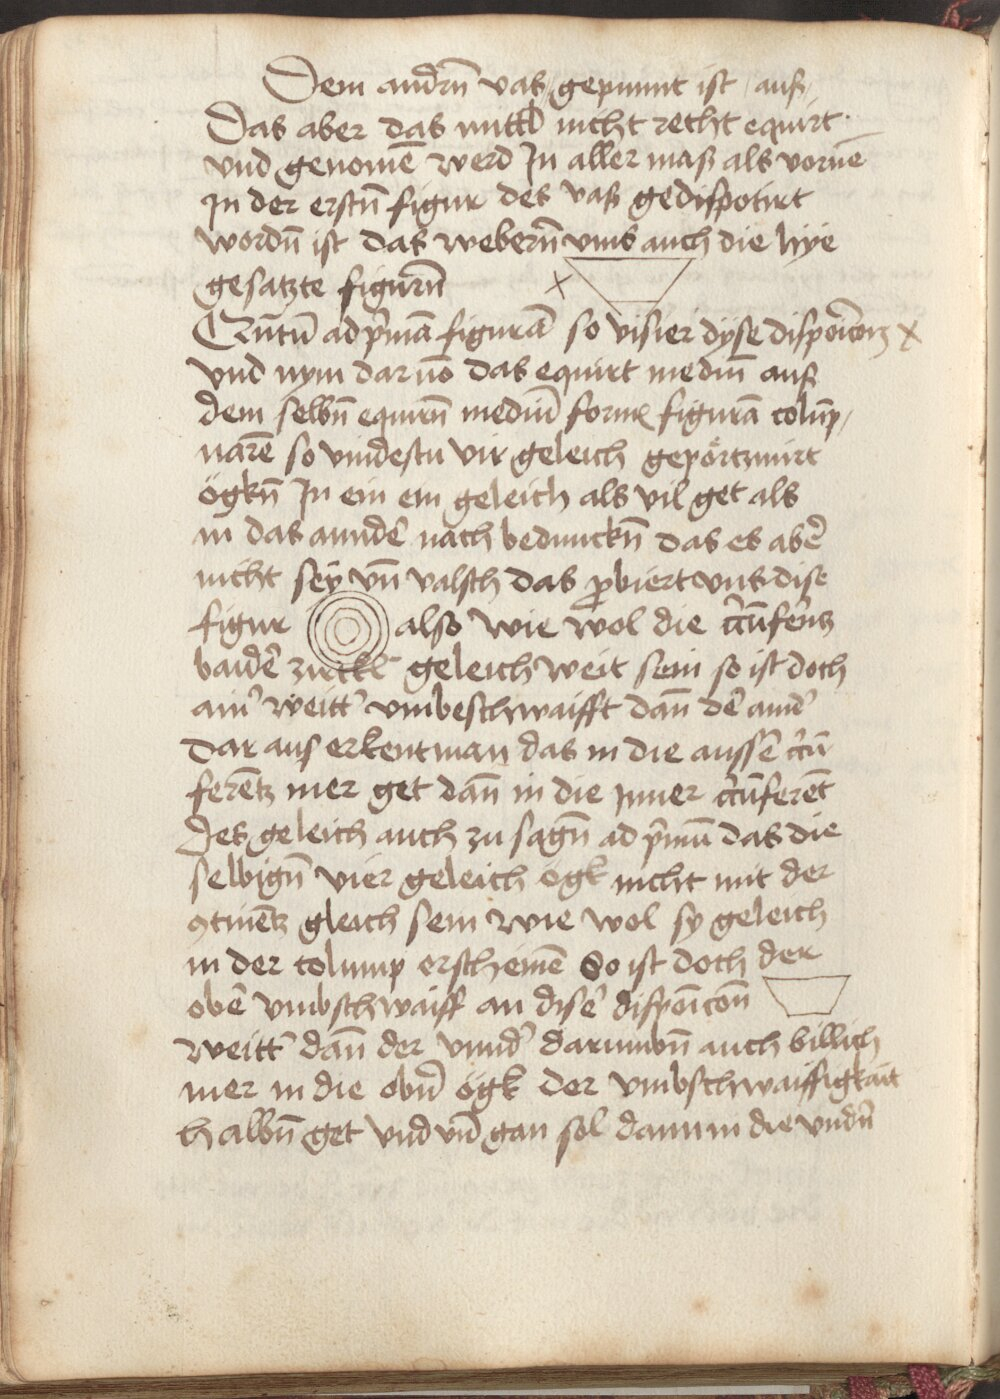 Dem andrn̄ vas gepunnt ist auß
Das aber das mittl nicht recht equirt
vnd genomē werd Jn aller maß als vornē
Jn der erstn̄ figur des vaß gedispotirt
wordn̄ ist das webern̄ vns auch die hÿe
gesatzte figurn̄
ad p̄mā figurā so visier dÿse disp x
vnd nym dar uō das equirt mediū auß
dem selbn̄ equirn̄ mediū form figurā colūp
narē so vindestu vir geleich
ögkn̄ Jn ein em geleich als vil get als
in das annde᷑ nach bedunckn̄ das es abe᷑
nicht seÿ vn̄ valsch das ꝓbiert vns dise
figur also wie wol die
baide᷑ zirckl geleich weit sein so ist doch
ain᷑ weitt᷑ vmbeschwaifft dan̄ de᷑ ande᷑
dar auß erkent man das in die ausse᷑ cr̄cū
ferētz mer get dan̄ in die Jnner cr̄cūferēt
Des geleich auch zu sagn̄ ad p̄mū das die
selbign̄ vier geleich ögk nicht mit der
ꝯtinētz gleich sein wie wol sy geleich
in der colump erscheinē So ist doch der
obe᷑ vmbschwaiff an dise᷑ disp
weitt᷑ dan̄ der vnnd᷑ darumbn̄ auch billich
mer in die obn̄ ögk der vmbschwaiffigkait
halbn̄ get vnd gan sol dann in die vndn̄